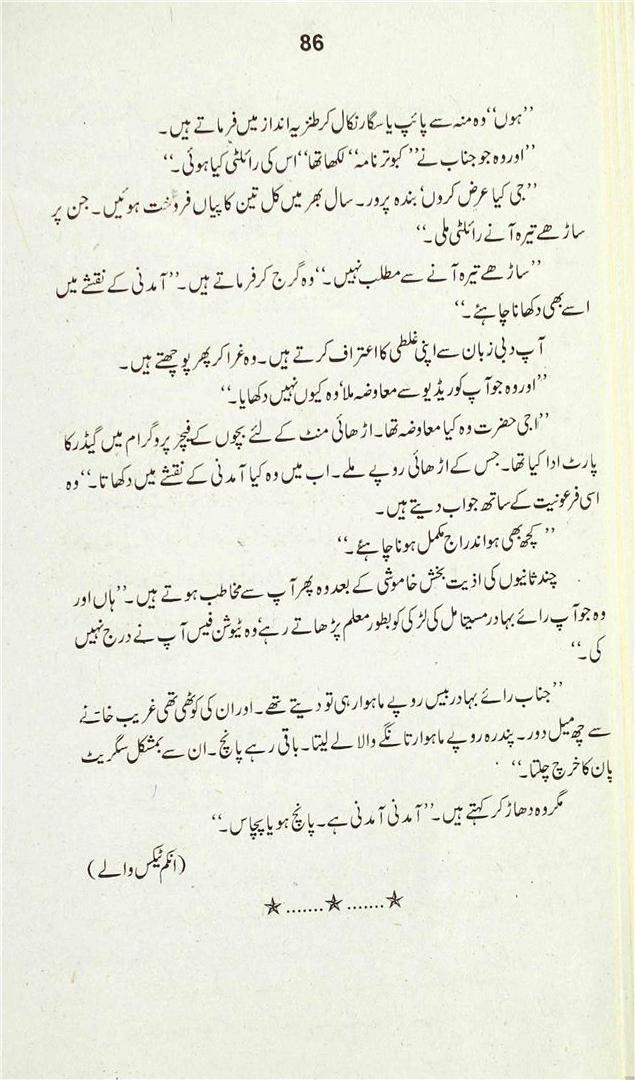 86
’’ہوں‘‘ وہ منہ سے پائپ یا سگار نکال کر طنزیہ انداز میں فرماتے ہیں۔
’’اور وہ جو جناب نے ’’کبوتر نامہ‘‘ لکھا تھا‘‘ اس کی رائلٹی کیا ہوئی۔‘‘
’’جی کیا عرض کروں‘ بندہ پرور۔ سال بھر میں کل تین کاپیاں فروخت ہوئیں۔ جن پر
ساڑھے تیرہ آنے رائلٹی ملی۔‘‘
’’ساڑھے تیرہ آنے سے مطلب نہیں۔‘‘ وہ گرج کر فرماتے ہیں۔ ’’آمدنی کے نقشے میں
اسے بھی دکھانا چاہئے۔‘‘
آپ دبی زبان سے اپنی غلطی کا اعتراف کرتے ہیں۔ وہ غرا کر پھر پوچھتے ہیں۔
’’اور وہ جو آپ کو ریڈیو سے معاوضہ ملا‘ وہ کیوں نہیں دکھایا۔‘‘
’’اجی حضرت وہ کیا معاوضہ تھا۔ اڑھائی منٹ کے لئے بچوں کے فیچر پروگرام میں گیڈر کا
پارٹ ادا کیا تھا۔ جس کے اڑھائی روپے ملے۔ اب میں وہ کیا آمدنی کے نقشے میں دکھاتا۔‘‘ وہ
اسی فرعونیت کے ساتھ جواب دیتے ہیں۔
’’کچھ بھی ہو اندراج مکمل ہونا چاہئے۔‘‘
چند ثانیوں کی اذیت بخش خاموشی کے بعد وہ پھر آپ سے مخاطب ہوتے ہیں۔ ’’ہاں اور
وہ جو آپ رائے بہادر مسیتا مل کی لڑکی کو بطور معلم پڑھاتے رہے‘ وہ ٹیوشن فیس آپ نے درج نہیں
کی۔‘‘
’’جناب رائے بہادر بیس روپے ماہوار ہی تو دیتے تھے۔ اور ان کی کوٹھی تھی غریب خانے
سے چھ میل دور۔ پندرہ روپے ماہوار تانگے والا لے لیتا۔ باقی رہے پانچ۔ ان سے بمشکل سگریٹ
پان کا خرچ چلتا۔‘‘
مگر وہ دھاڑ کر کہتے ہیں۔ ’’آمدنی آمدنی ہے۔ پانچ ہو یا پچاس۔‘‘
(انکم ٹیکس والے)
☆.......☆.......☆